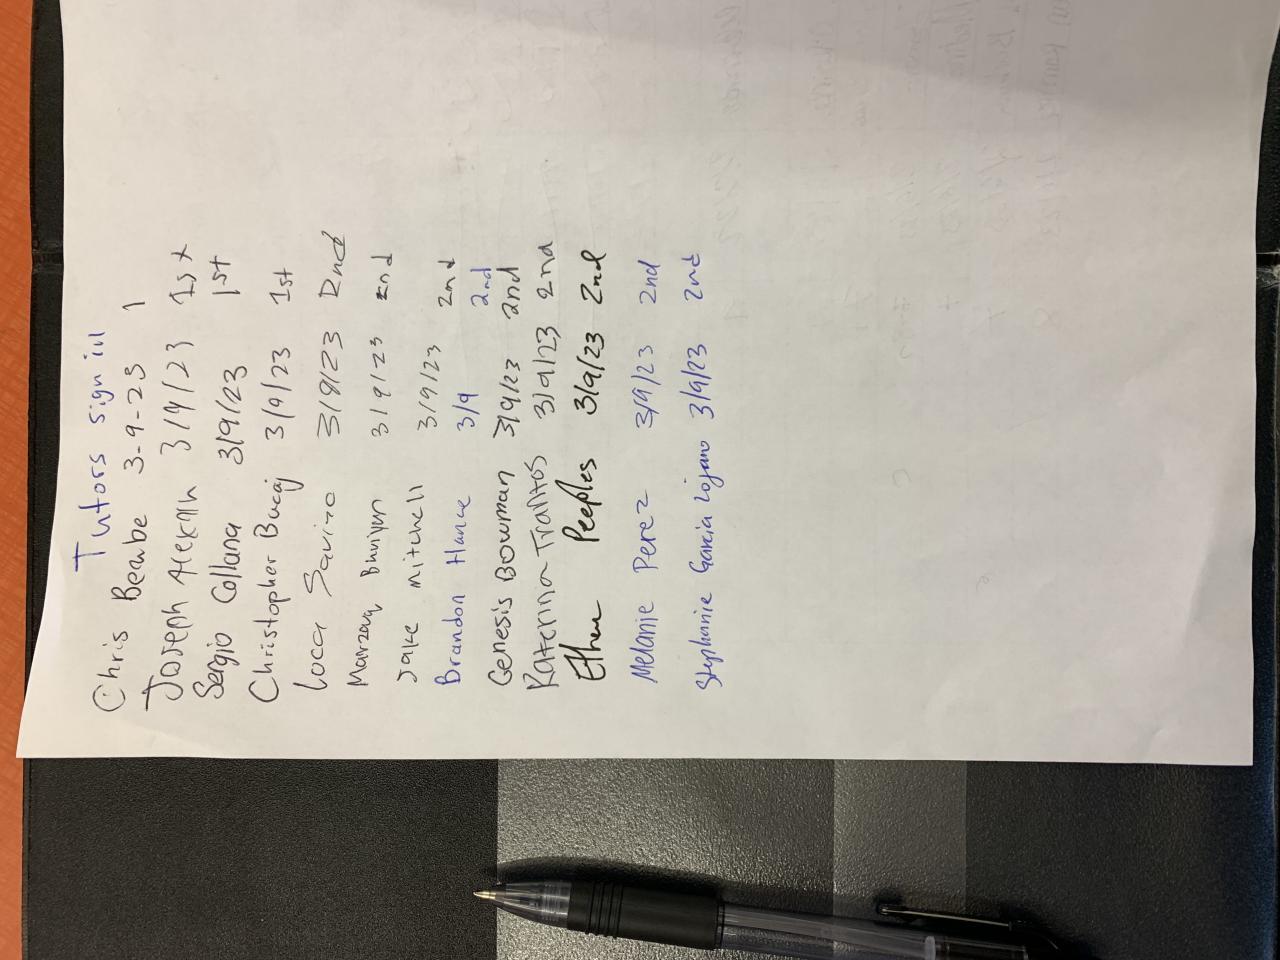 Tutors sign in
Chris Beambe 3-9-23 1
Joseph 3/9/23 1st
Sergio Collana 3/9/23 1st
Christopher Bucaj 3/9/23 1st
Luca Savino 3/9/23 2nd
Marzova Buniyan 3/9/23 2nd
Jake Mitchell 3/9/23 2nd
Brandon Hance 3/9 2nd
Genesis Bowman 3/9/23 2nd
Katerina Tralitos 3/9/23 2nd
Ethan Peeples 3/9/23 2nd
Melanie Perez 3/9/23 2nd
Stephanie Garcia Lojano 3/9/23 2nd